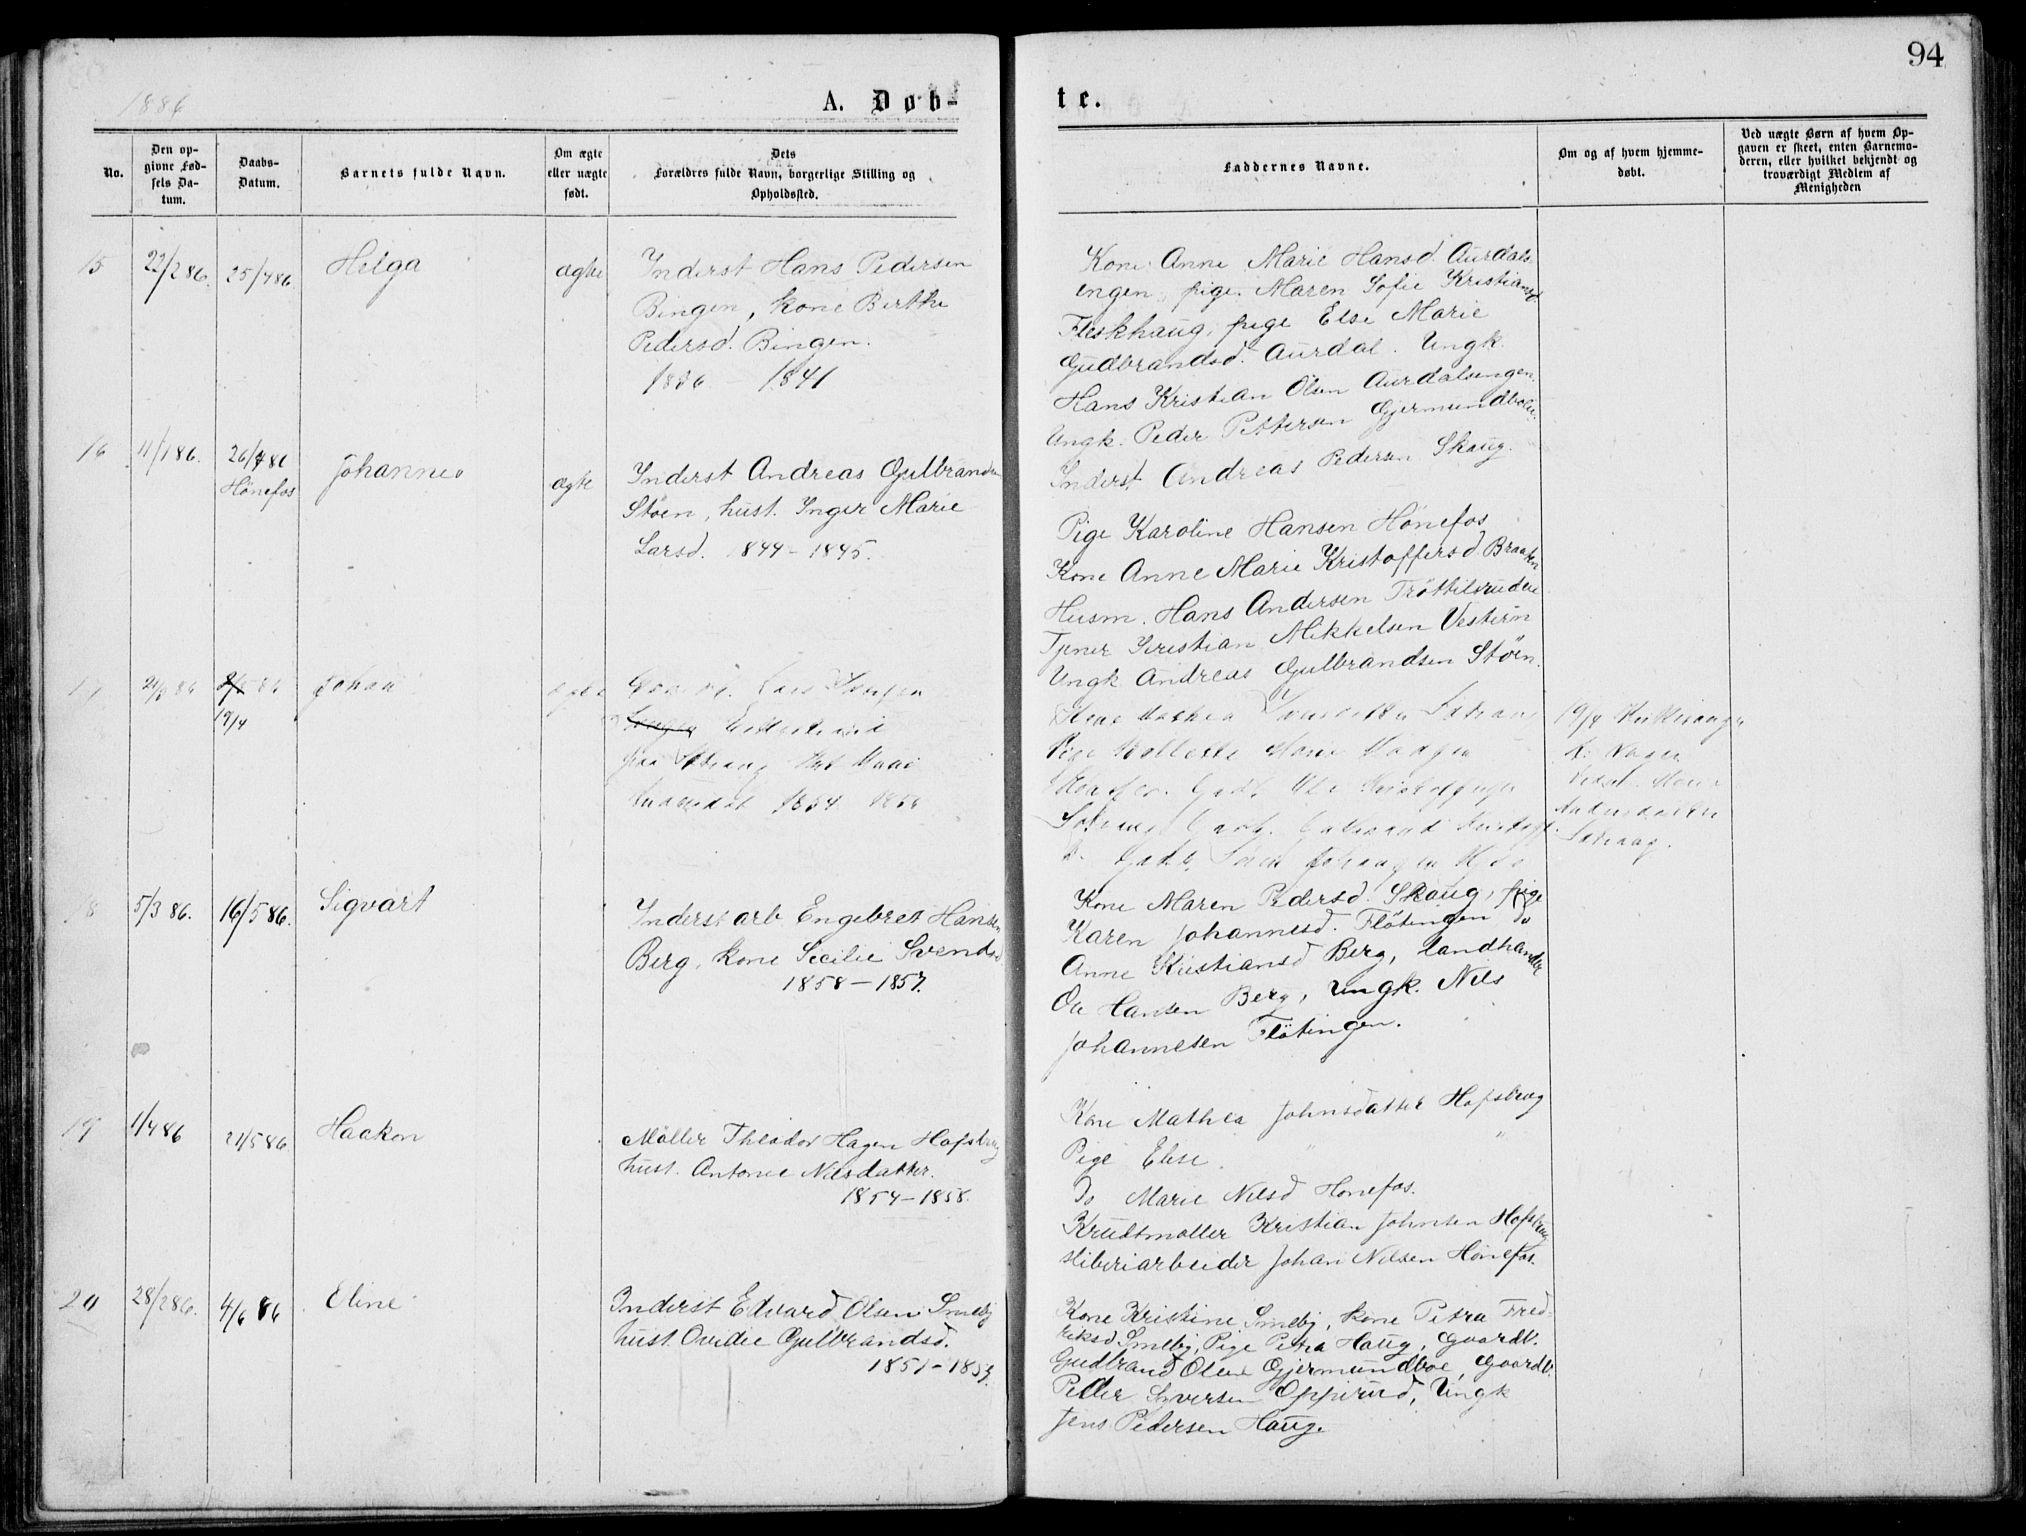 94
1886
A. Døb-
te.
No.
Den op-
givne Fød-
sels Da-
tum.
Daabs-
Datum.
Barnets fulde Navn.
Om ægte
eller uægte
født.
Dets
Forældres fulde Navn, borgerlige Stilling og
Opholdssted.
Faddernes Navne.
Om og af hvem hjemme-
døbt.
Ved uægte Børn af hvem Op-
gaven er skeet, enten Barnemo-
deren, eller hvilket bekjendt og
troværdigt Medlem af
Menigheden
15
22/2 86.
25/4 86.
Helga
ægte
Inderst Hans Pedersen
Bingen, kone Berthe
Pedersd. Bingen.
1836 1841
Kone Anne Marie Hansd. Aurdals
engen, pige Maren Sofie Kristiansd
Fleskhaug, pige Else Marie
Gudbrandsd. Aurdal. Ungk.
Hans Kristian Olsen Aurdalsengen.
Ungk. Peder Pettersen Gjermundboe,
Inderst Andreas Pedersen Skaug.
16
11/1 86.
26/4 86
Hönefos
Johannes
ægte
Inderst Andreas Gulbrandsen
Stöen, hust. Inger Marie
Larsd. 1844 - 1845.
Pige Karoline Hansen Hönefos
Kone Anne Marie Kristoffersd. Braaten
Husm. Hans Andersen Tröttelsrudeie
Tjener Kristian Mikkelsen Vestern
Ungk Andreas Gulbrandsen Stöen.
17
86
19/4
Johan
ægte
Lars
1854 1856
Kone Mathea
Pige Marie
19/4
18
5/3 86.
16/5 86.
Sigvart
Inderst arb Engebret Hansen
Berg, kone Secilie Svendsd
1858 - 1857.
Kone Maren Pedersd. Skaug, pige
Karen Johannesd. Flötingen do
Anne Kristiansd Berg, landhandler
Ole Hansen Berg, Ungk. Nils
Johannesen Flötingen.
19
1/4 86
21/5 86
Haakon
Möller Theodor Hagen Hofsbrug
hust. Antonie Nilsdatter.
1854 - 1858.
Kone Mathea Johnsdatter Hofsbrug
Pige Elise " "
Do Marie Nilsd Hönefos.
Krudtmöller Kristian Johnsen Hofsbrug
sliberiarbeider Johan Nilsen Hönefos.
20
28/2 86.
4/6 86
Eline
Inderst Edvard Olsen Smeby
hust. Ovidie Gulbrandsd.
1851 - 1853.
Kone Kristine Smeby, kone Petra Fred-
riksd. Smeby, Pige Petra Haug, Gaardbr.
Gudbrand Olsen Gjermundboe, Gaardbr.
Peder Syversen Opperud, Ungk
Jens Pedersen Haug.